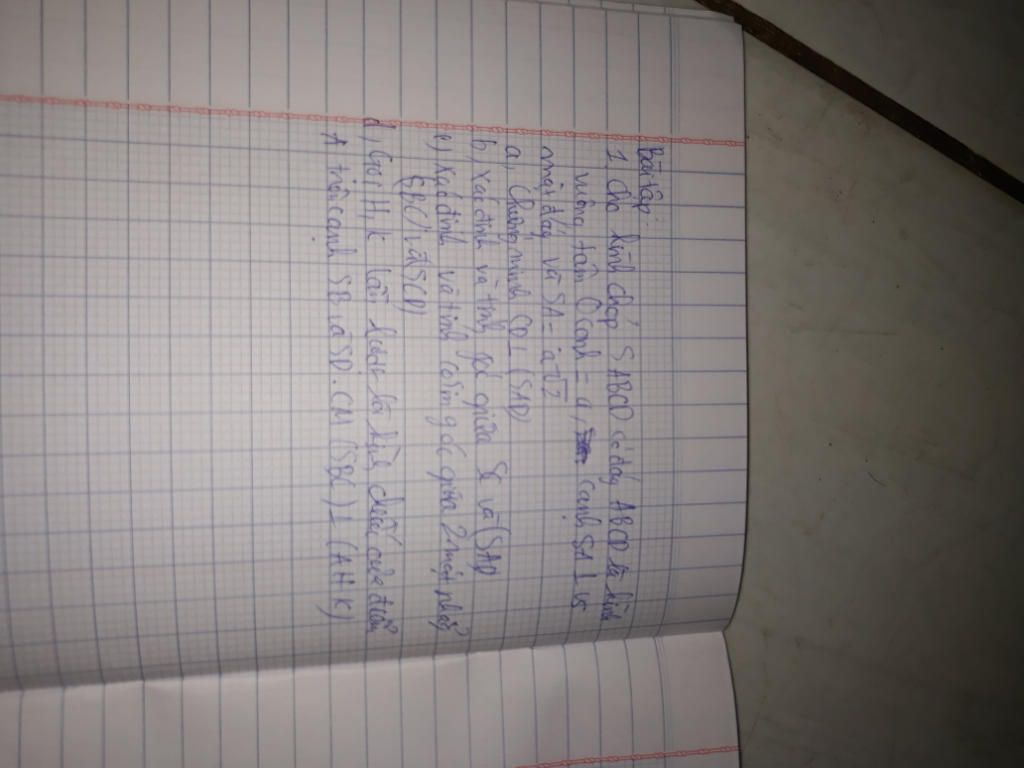 Bài tập:
1 cho hình chóp S ABCD có đáy ABCD là hình
vuông tâm O cạnh = a, cạnh SA ⊥ vs
mặt đáy và SA = a√2
a, Chứng minh CD ⊥ (SAD)
b) xác định và tính góc giữa SC và (SAD)
c) xác định và tính cosin góc giữa 2 mặt phẳng
(SBC) và (SCD)
d, Gọi H, K lần lượt là hình chiếu của điểm
A trên cạnh SB và SD. CM (SBC) ⊥ (AHK)